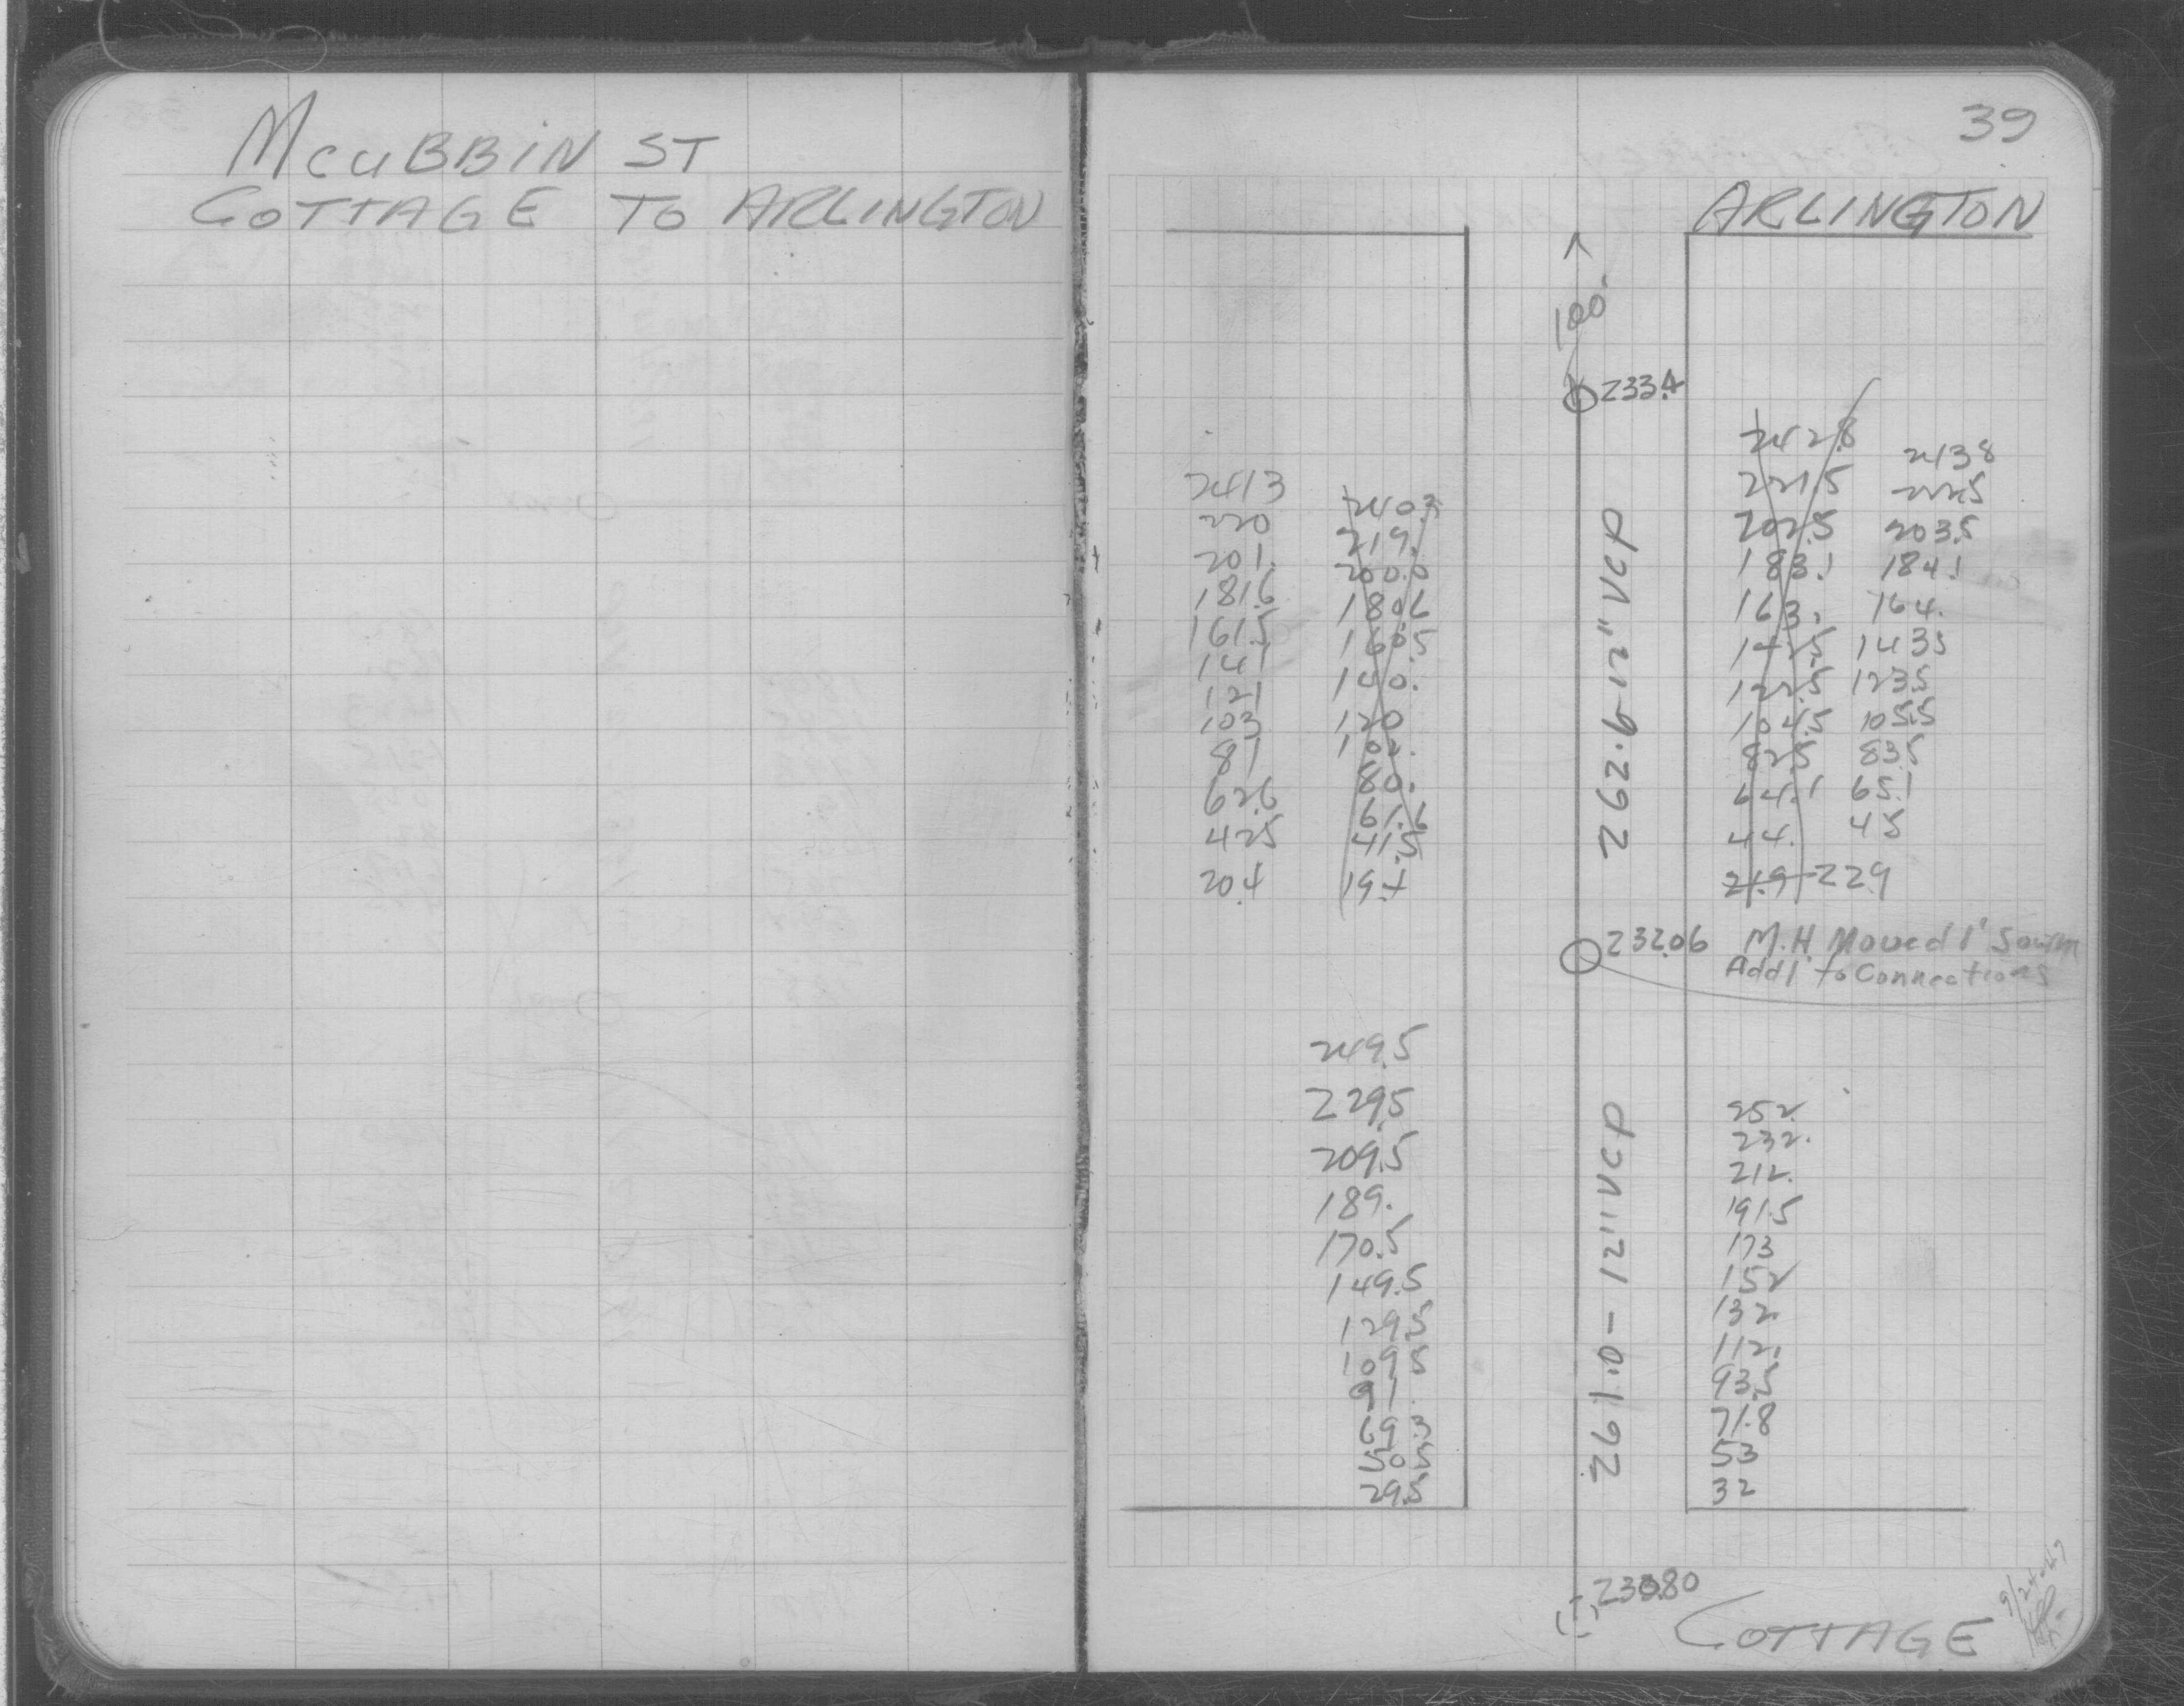 McUBBIN ST
COTTAGE TO ARLINGTON
39
ARLINGTON
100.
233.4
2413
220
201.
181.6
161.5
141
121
103
81
62.6
42.5
20.4
240.3
219.
200.0
180.6
160.5
140.
120
102.
80.
61.6
41.5
19.4
262.6-12" VCP
242.8
221.5
202.5
183.1
163.
142.5
122.5
104.5
82.5
64.1
44.
21.9
2438
222.5
203.5
184.1
164.
143 5
123.5
105.5
83.5
65.1
45
22.9
232.06 M.H. Moved 1' South
Add 1' to Connections
249.5
229.5
209.5
189.
170.5
149.5
129.5
109 5
91.
69.3
50.5
29.5
261.0-12" VCP
252.
232.
212.
191.5
173
152
132
112.
93.5
71.8
53
32
COTTAGE